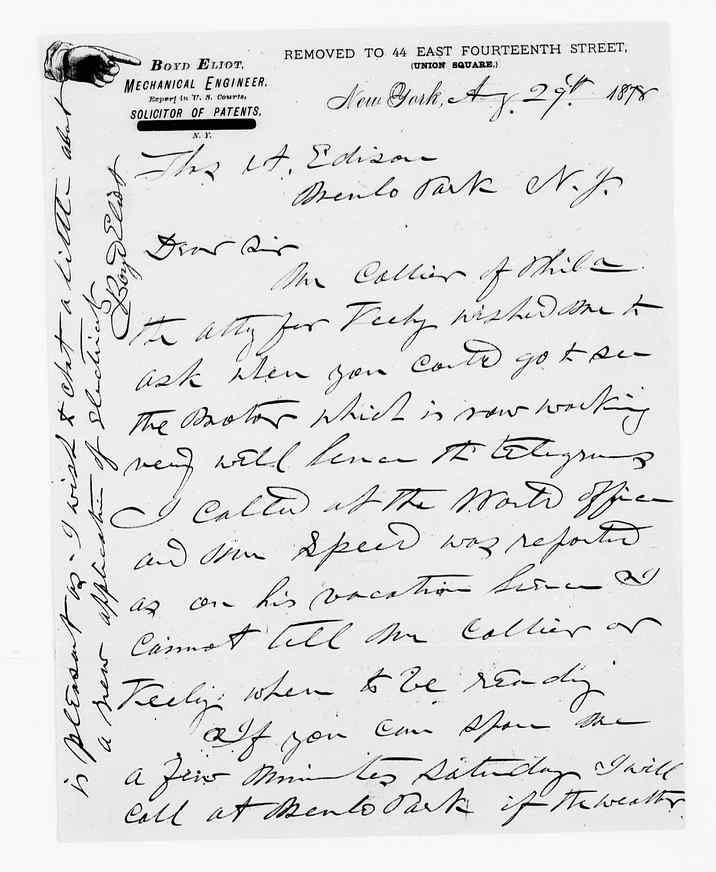 BOYD ELIOT,
MECHANICAL ENGINEER.
Expert in U. S. Courts,
SOLICITOR OF PATENTS,
N. Y.
REMOVED TO 44 EAST FOURTEENTH STREET,
(UNION SQUARE.)
New York, Aug. 29th 1878
Thos A. Edison
Menlo Park N. J.
Dear Sir
Mr Collier of Phila
the atty for Keely wished me to
ask when you could go to see
the Motor which is now working
very well hence the telegrams
I called at the World office
and Mr Speed was reported
as on his vacation hence I
cannot tell Mr Collier or
Keely when to be ready
If you can spare me
a few minutes Saturday I will
call at Menlo Park if the weather
is pleasant as I wish to chat a little about
a new application of Electricity
Boyd Eliot